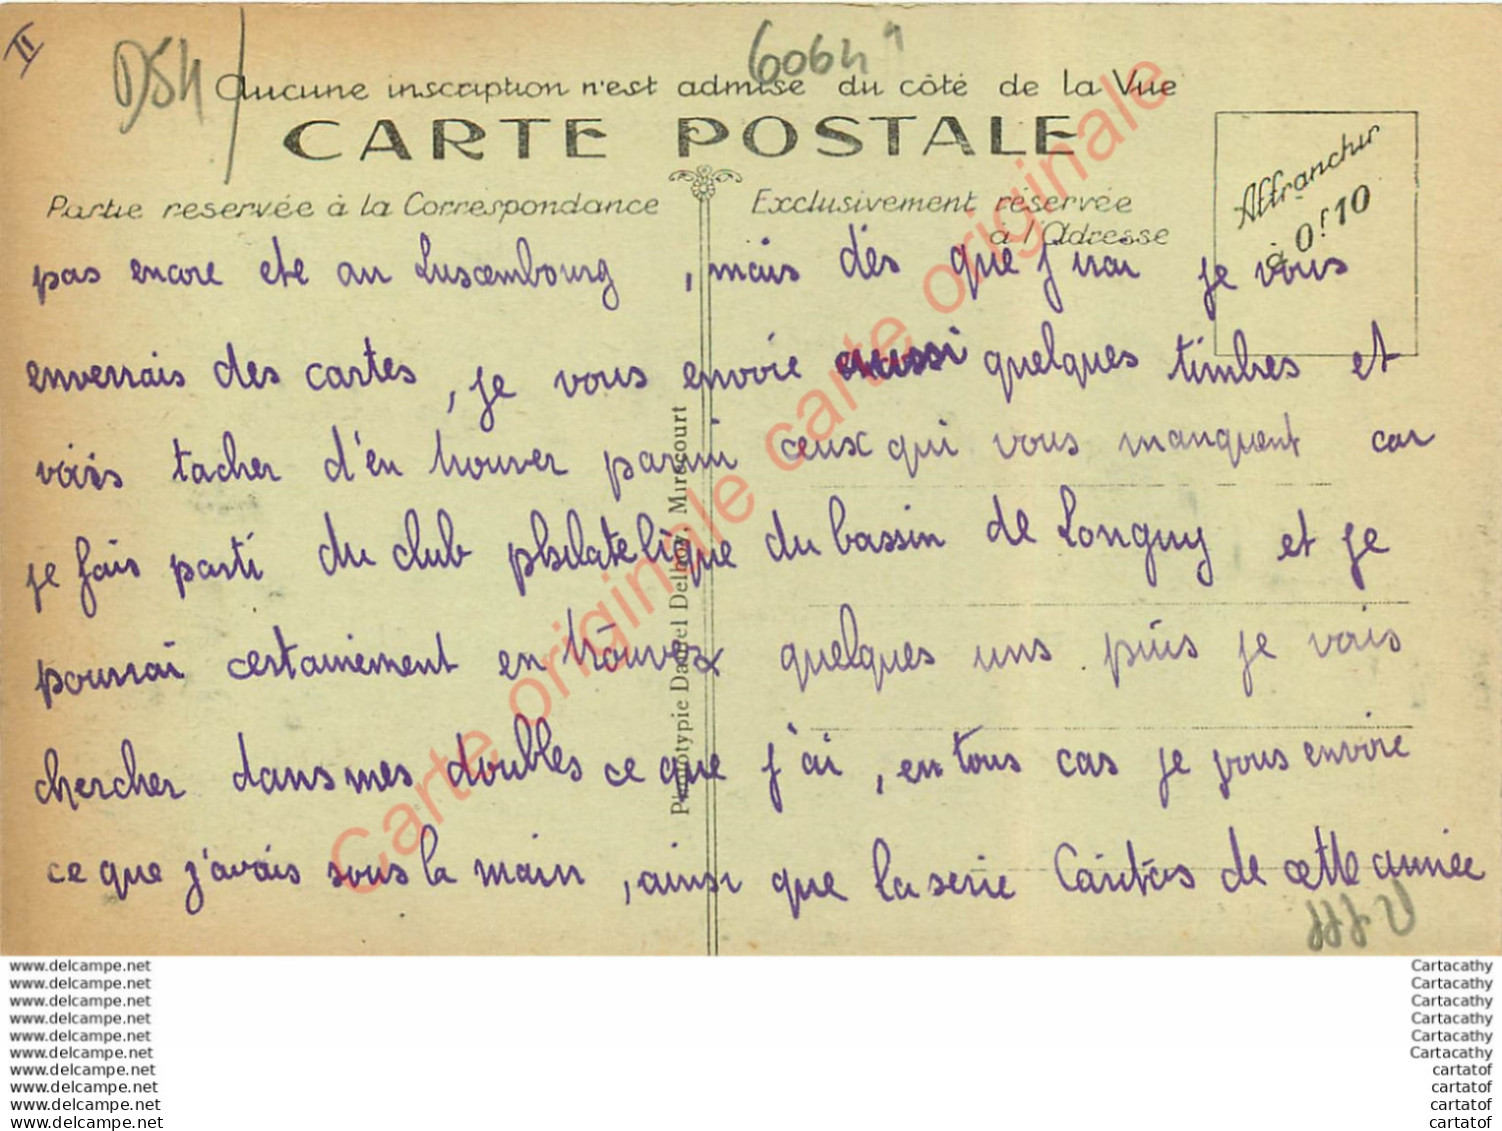 II
D54
60641
Aucune inscription n'est admise du côté de la Vue
CARTE POSTALE
Partie reservée à la Correspondance
Exclusivement réservée
à l'Adresse
Affranchir
à 0f.10
pas encore ete au Luxembourg , mais dés que j'irai je vous
enverrais des cartes, je vous envoie aussi quelques timbres et
vais tacher d'en trouver parmi ceux qui vous manquent car
je fais parti du club philatelique du bassin de Longwy et je
pourrai certainement en trouver quelques uns puis je vais
chercher dans mes doubles ce que j'ai, en tous cas je vous envoie
ce que j'avais sous la main, ainsi que la serie Caritas de cette année
Phototypie Daniel Delboy. Mirecourt
Carte originale carte originale
www.delcampe.net
www.delcampe.net
www.delcampe.net
www.delcampe.net
www.delcampe.net
www.delcampe.net
www.delcampe.net
www.delcampe.net
www.delcampe.net
www.delcampe.net
Cartacathy
Cartacathy
Cartacathy
Cartacathy
Cartacathy
Cartacathy
cartatof
cartatof
cartatof
cartatof